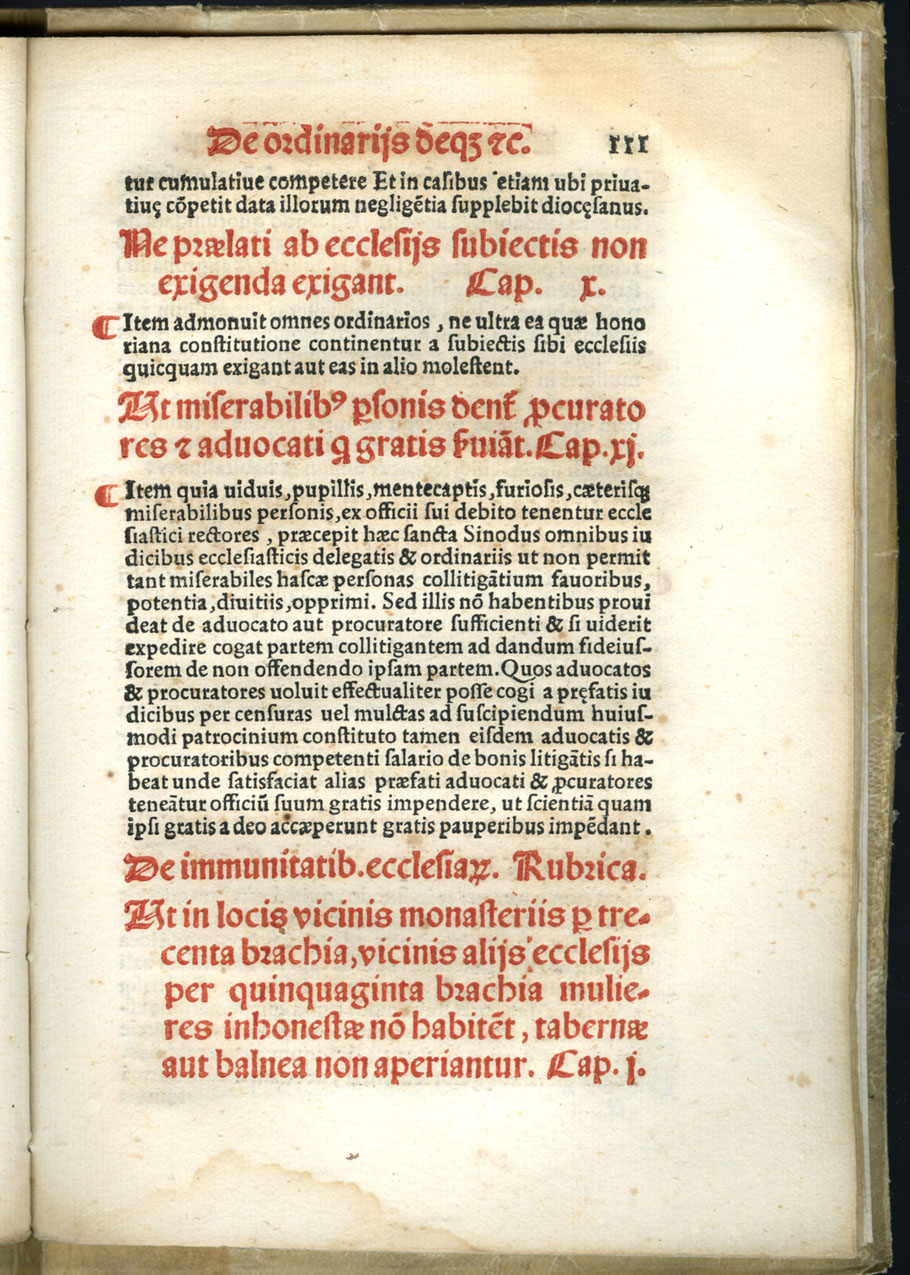 De ordinarijs deqꝫ ⁊c. xxx
tur cumulatiue competere Et in casibus etiam ubi priua-
tiuę cõpetit data illorum negligẽtia supplebit diocęsanus.
Ne prælati ab ecclesijs subiectis non
exigenda exigant. Cap. x.
¶ Item admonuit omnes ordinarios , ne ultra ea quæ hono
riana constitutione continentur a subiectis sibi ecclesiis
quicquam exigant aut eas in alio molestent.
Ut miserabilibꝰ ꝑsonis dent᷑ ꝓcurato
res ⁊ aduocati q gratis ẜuiãt. Cap. xj.
¶ Item quia uiduis,pupillis,mentecaptis,furiosis,cæterisqꝫ
miserabilibus personis,ex officii sui debito tenentur eccle
siastici rectores , præcepit hæc sancta Sinodus omnibus iu
dicibus ecclesiasticis delegatis & ordinariis ut non permit
tant miserabiles hascæ personas collitigãtium fauoribus,
potentia,diuitiis,opprimi. Sed illis nõ habentibus proui
deat de aduocato aut procuratore sufficienti & si uiderit
expedire cogat partem collitigantem ad dandum fideius-
sorem de non offendendo ipsam partem. Quos aduocatos
& procuratores uoluit effectualiter posse cogi a pręfatis iu
dicibus per censuras uel mulctas ad suscipiendum huius-
modi patrocinium constituto tamen eisdem aduocatis &
procuratoribus competenti salario de bonis litigãtis si ha-
beat unde satisfaciat alias præfati aduocati & ꝓcuratores
teneãtur officiũ suum gratis impendere, ut scientiã quam
ipsi gratis a deo accæperunt gratis pauperibus impẽdant .
De immunitatib. ecclesiaꝝ. Rubrica.
Ut in locis vicinis monasteriis ꝑ tre-
centa brachia,vicinis alijs ecclesijs
per quinquaginta brachia mulie-
res inhonestæ nõ habitẽt , tabernæ
aut balnea non aperiantur. Cap. j.